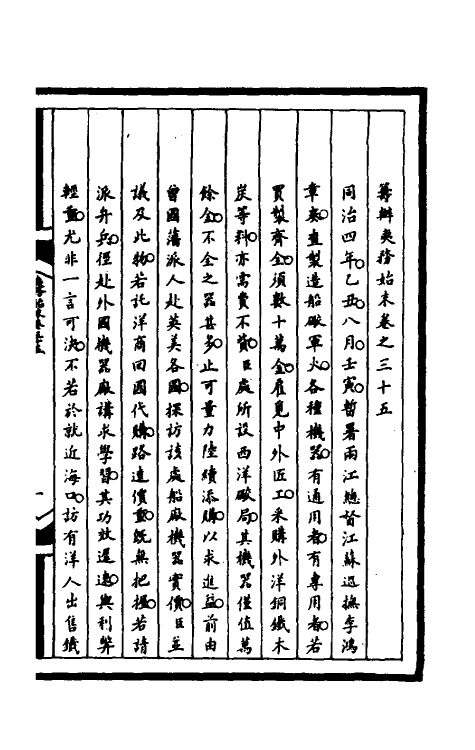 籌辦夷務始末卷之三十五
同治四年乙丑八月壬寅暫署兩江總督江蘇巡撫李鴻
章奏查製造船礮軍火各種機器有通用者有專用者若
買製齊全須數十萬金雇覓中外匠工采購外洋銅鐵木
炭等料亦需費不貲臣處所設西洋礮局其機器僅值萬
餘金不全之器甚多止可量力陸續添購以求進益前由
曾國藩派人赴英美各國探訪該處船廠機器實價臣並
議及此物若託洋商回國代購路遠價重既無把握若請
派弁兵徑赴外國機器廠講求學習其功效遲速與利弊
輕重尤非一言可決不若於就近海口訪有洋人出售鐵